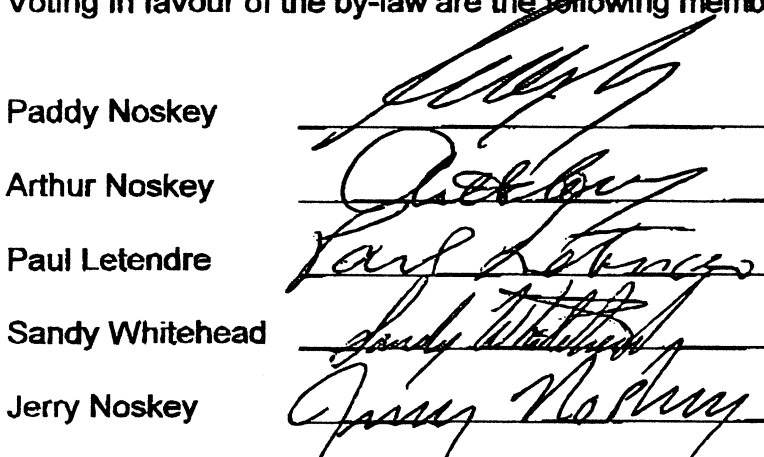 Voting in favour of the by-law are the following
Paddy Noskey
Arthur Noskey
Paul Letendre Paul Letendre
Sandy Whitehead Sandy Whitehead
Jerry Noskey Jerry Noskey